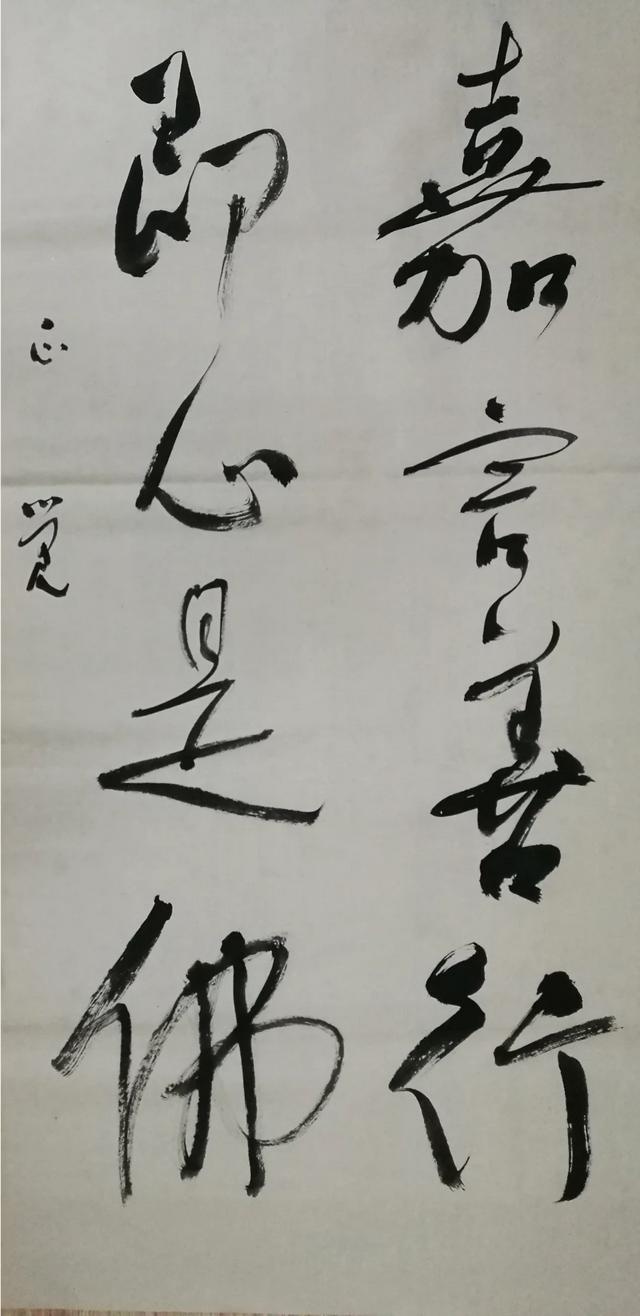 嘉言善行
即心是佛
正觉